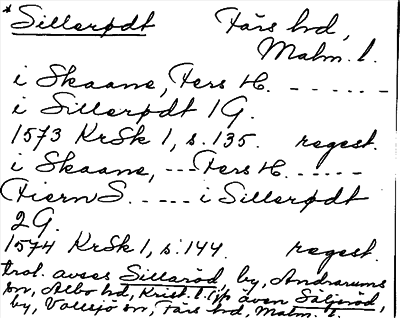 * Sillerødt Färs hd,
Malm. l.
i Skaane, Fers H. - - - - - -
i Sillerødt 1 G.
1573 KrSk 1, s. 135. regest.
i Skaane, --- Fers H. - - - - -
Fiern S. - - - - - i Sillerødt
2 G.
1574 KrSk 1, s. 144. regest.
trol. avses Sillaröd, by, Andrarums
sn, Albo hd, Krist. l. även Säljeröd,
by, Vallsjö sn, Färs hd, Malm. l.